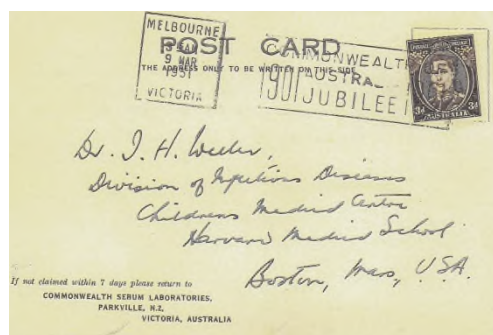 MELBOURNE
9 MAR
1951
VICTORIA
POST CARD
THE ADDRESS ONLY TO BE WRITTEN ON THIS SIDE
COMMONWEALTH
AUSTRA
1901 JUBILEE
3d 3d
AUSTRALIA
Dr. J. H. Weller,
Division of Infectious Diseases
Childrens Medical Centre
Harvard Medical School
Boston, Mass, USA.
If not claimed within 7 days please return to
COMMONWEALTH SERUM LABORATORIES,
PARKVILLE, N.2,
VICTORIA, AUSTRALIA